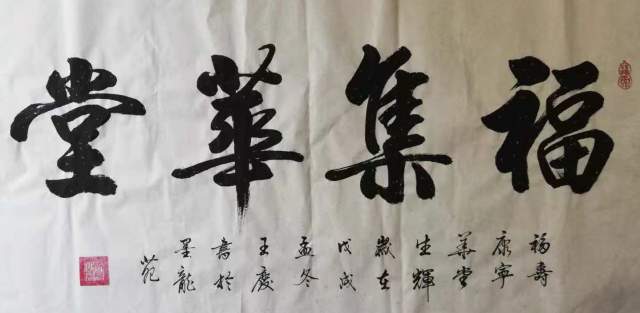 福集華堂
福壽
康寧
華堂
生輝
歲在
戊戌
孟冬
王慶
書於
墨龍
苑